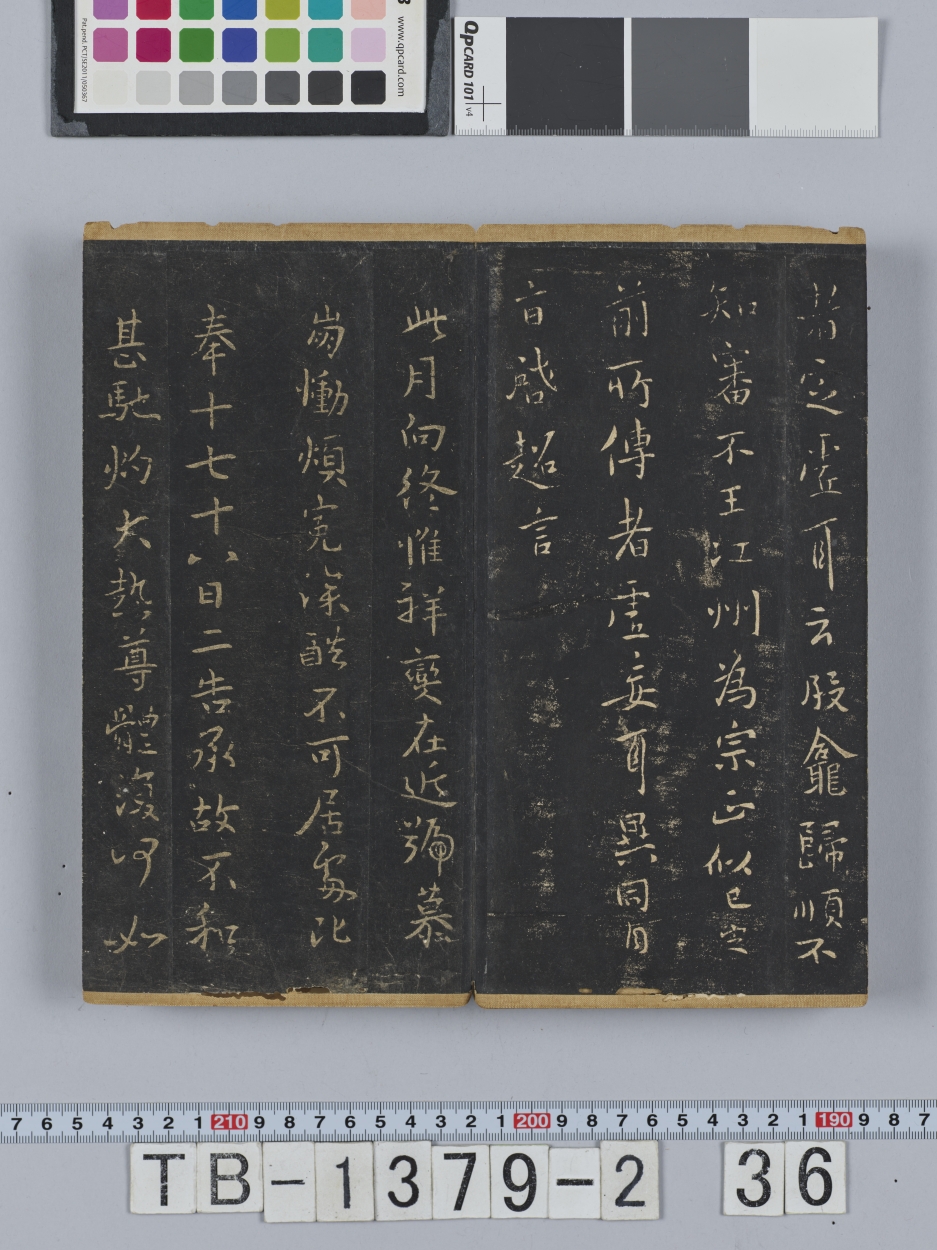 定虛耳云殷龕歸順不
知審不王江州為宗正似已定
前所傳者虛妄耳異同自
啓超言
此月向終惟祥變在近號慕
崩慟煩冤深酷不可居處比
奉十七十八日二告承故不和
甚馳灼大熱尊體復何如
www.qpcard.com
Pat.pend. PCT/SE2011/050367
QPCARD 101 v4
7 6 5 4 3 2 1 210 9 8 7 6 5 4 3 2 1 200 9 8 7 6 5 4 3 2 1 190 9 8 7
TB-1379-2 36